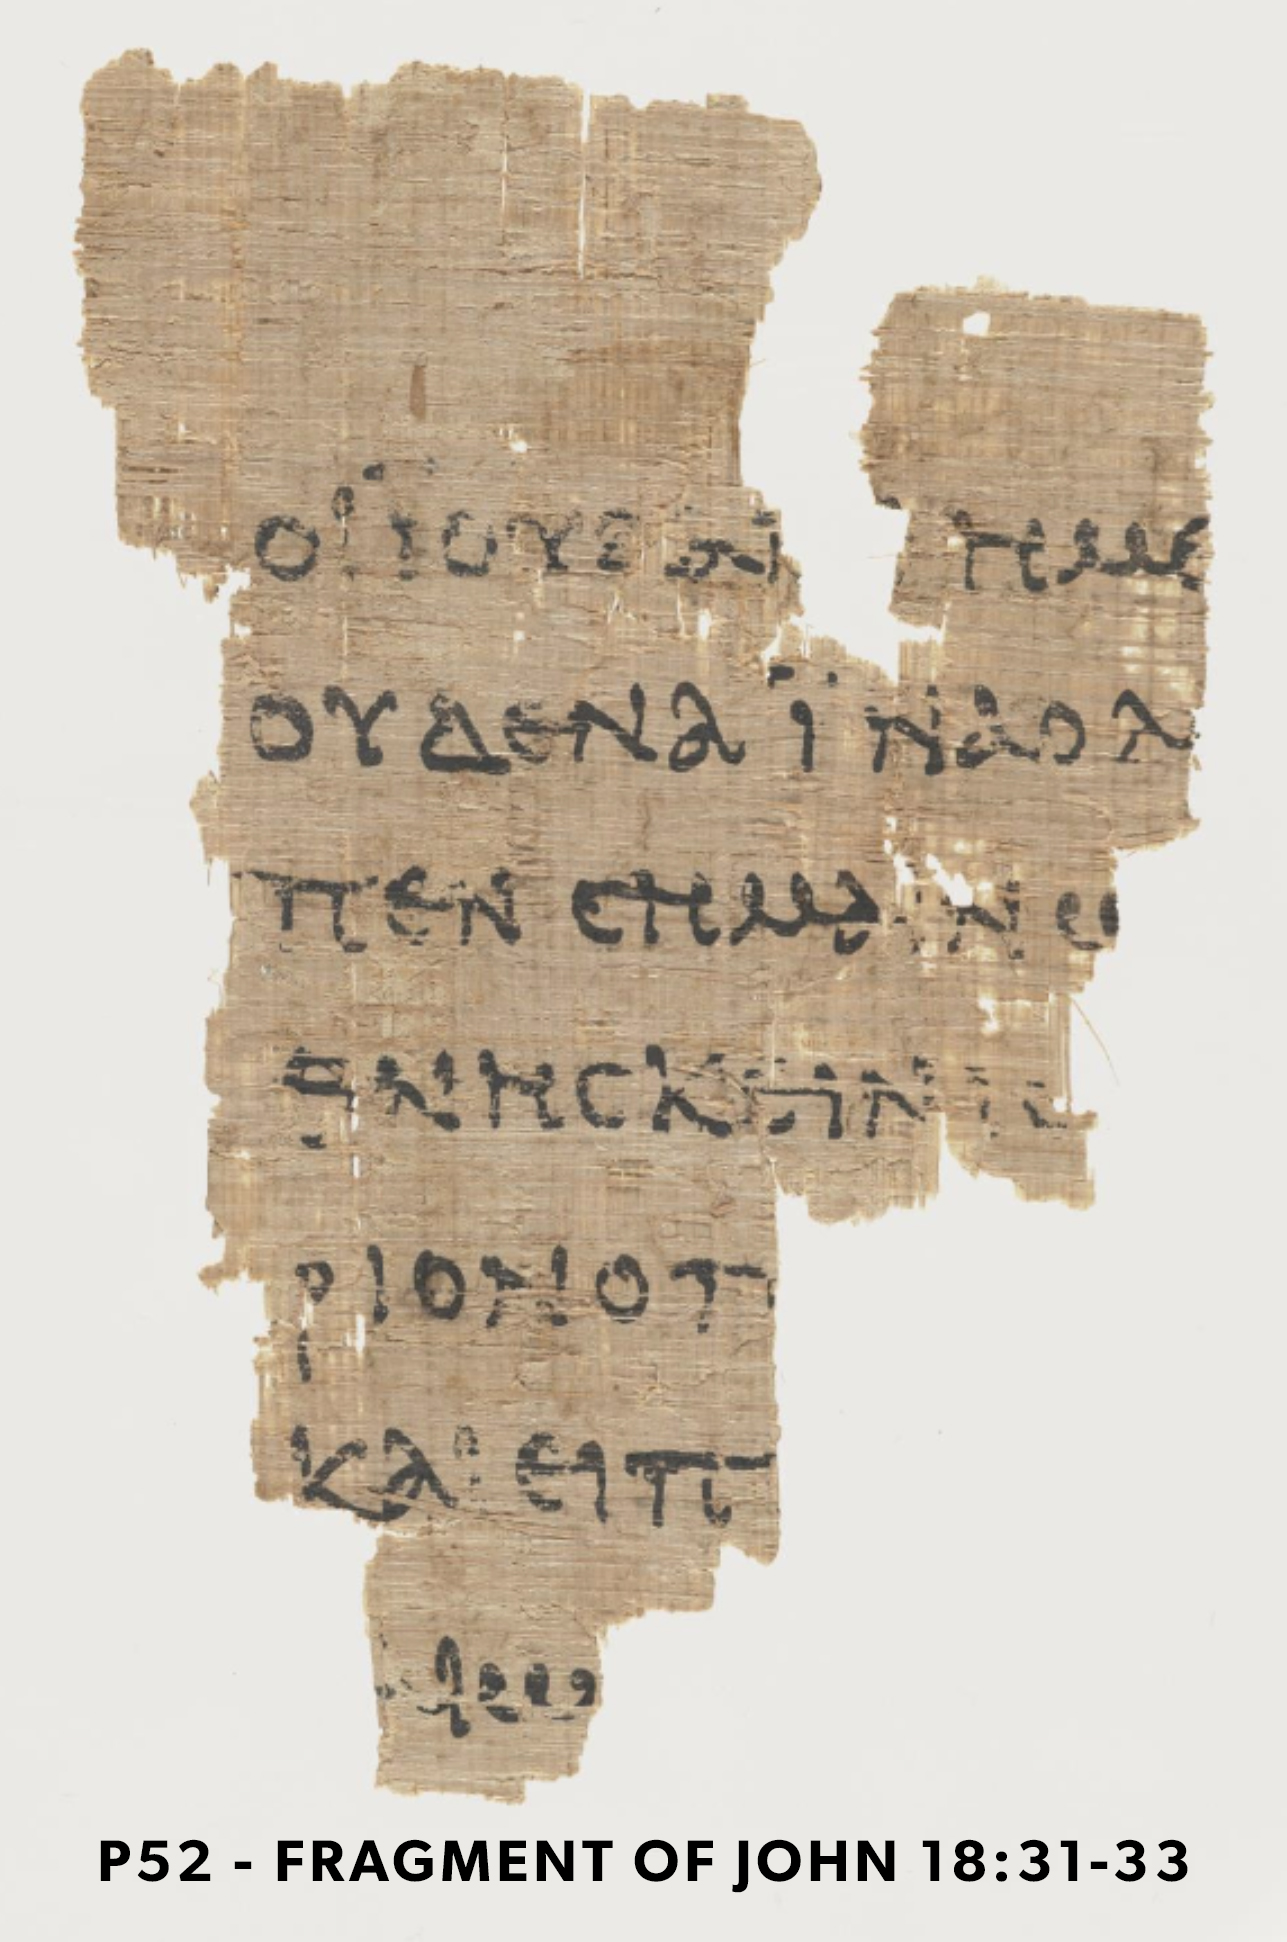 ΟΙ ΙΟΥΔΑΙ ΗΜΕ
ΟΥΔΕΝΑ ΙΝΑ Ο Λ
ΠΕΝ ΣΗΜΑΙΝΩ
ΘΝΗΣΚΕΙΝ ΙΣ
ΡΙΟΝ Ο Π
ΚΑΙ ΕΙΠ
ΑΙΩ
P52 - FRAGMENT OF JOHN 18:31-33